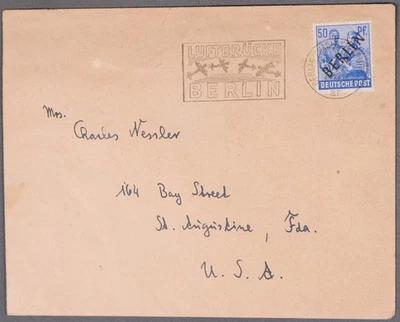 LUFTBRÜCKE
BERLIN
50 PF.
BERLIN
DEUTSCHE POST
Mrs.
Charles Nessler
164 Bay Street
St. Augustine, Fda.
U. S. A.